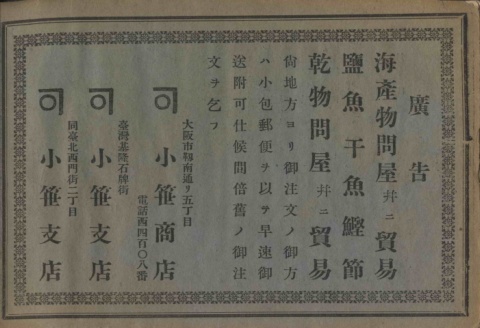 廣告
海產物問屋幷ニ貿易
鹽魚干魚鰹節
乾物問屋幷ニ貿易
尙地方ヨリ御注文ノ御方
ハ小包郵便ヲ以テ早速御
送附可仕候間倍舊ノ御注
文ヲ乞フ
大阪市靱南通リ五丁目
小笹商店
電話西四百〇八番
臺灣基隆石牌街
小笹支店
同臺北西門街二丁目
小笹支店